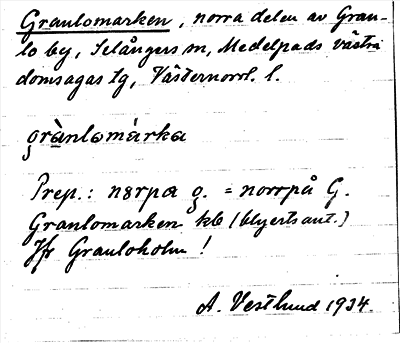 Granlomarken, norra delen av Gran-
lo by, Selångers sn, Medelpads västra
domsagas tg, Västernorrl. l.
grànlomárka
Prep.: nɔrpa g. = norrpå G.
Granlomarken kb (blyertsant.)
Jfr Granloholm!
A. Vestlund 1934.